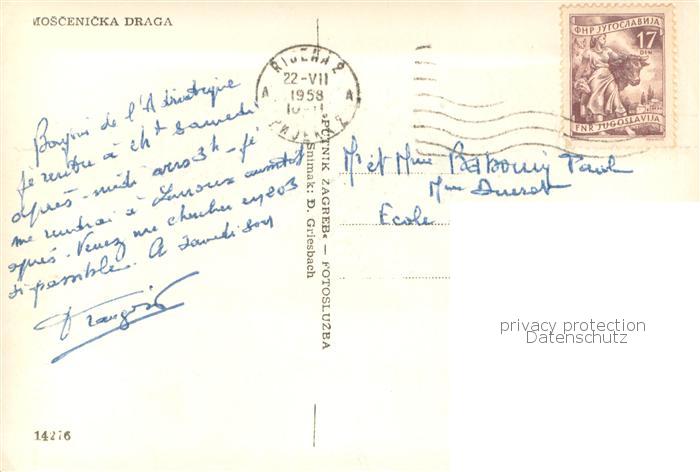 MOŠĆENIČKA DRAGA
RIJEKA 2
22-VII
1958
A A
ФНР ЈУГОСЛАВИЈА
17
DIN
FNR JUGOSLAVIJA
Bonjour de l'Adriatique
je rentre à samedi
après-midi vers 3h - je
me rendrai à aussitôt
après. Venez me chercher en 203
si possible. A samedi soir
François
PUTNIK ZAGREB« — FOTOSLUŽBA
Snimak: Đ. Griesbach
Mr et Mme Paul
Mme
Ecole
privacy protection
Datenschutz
14276